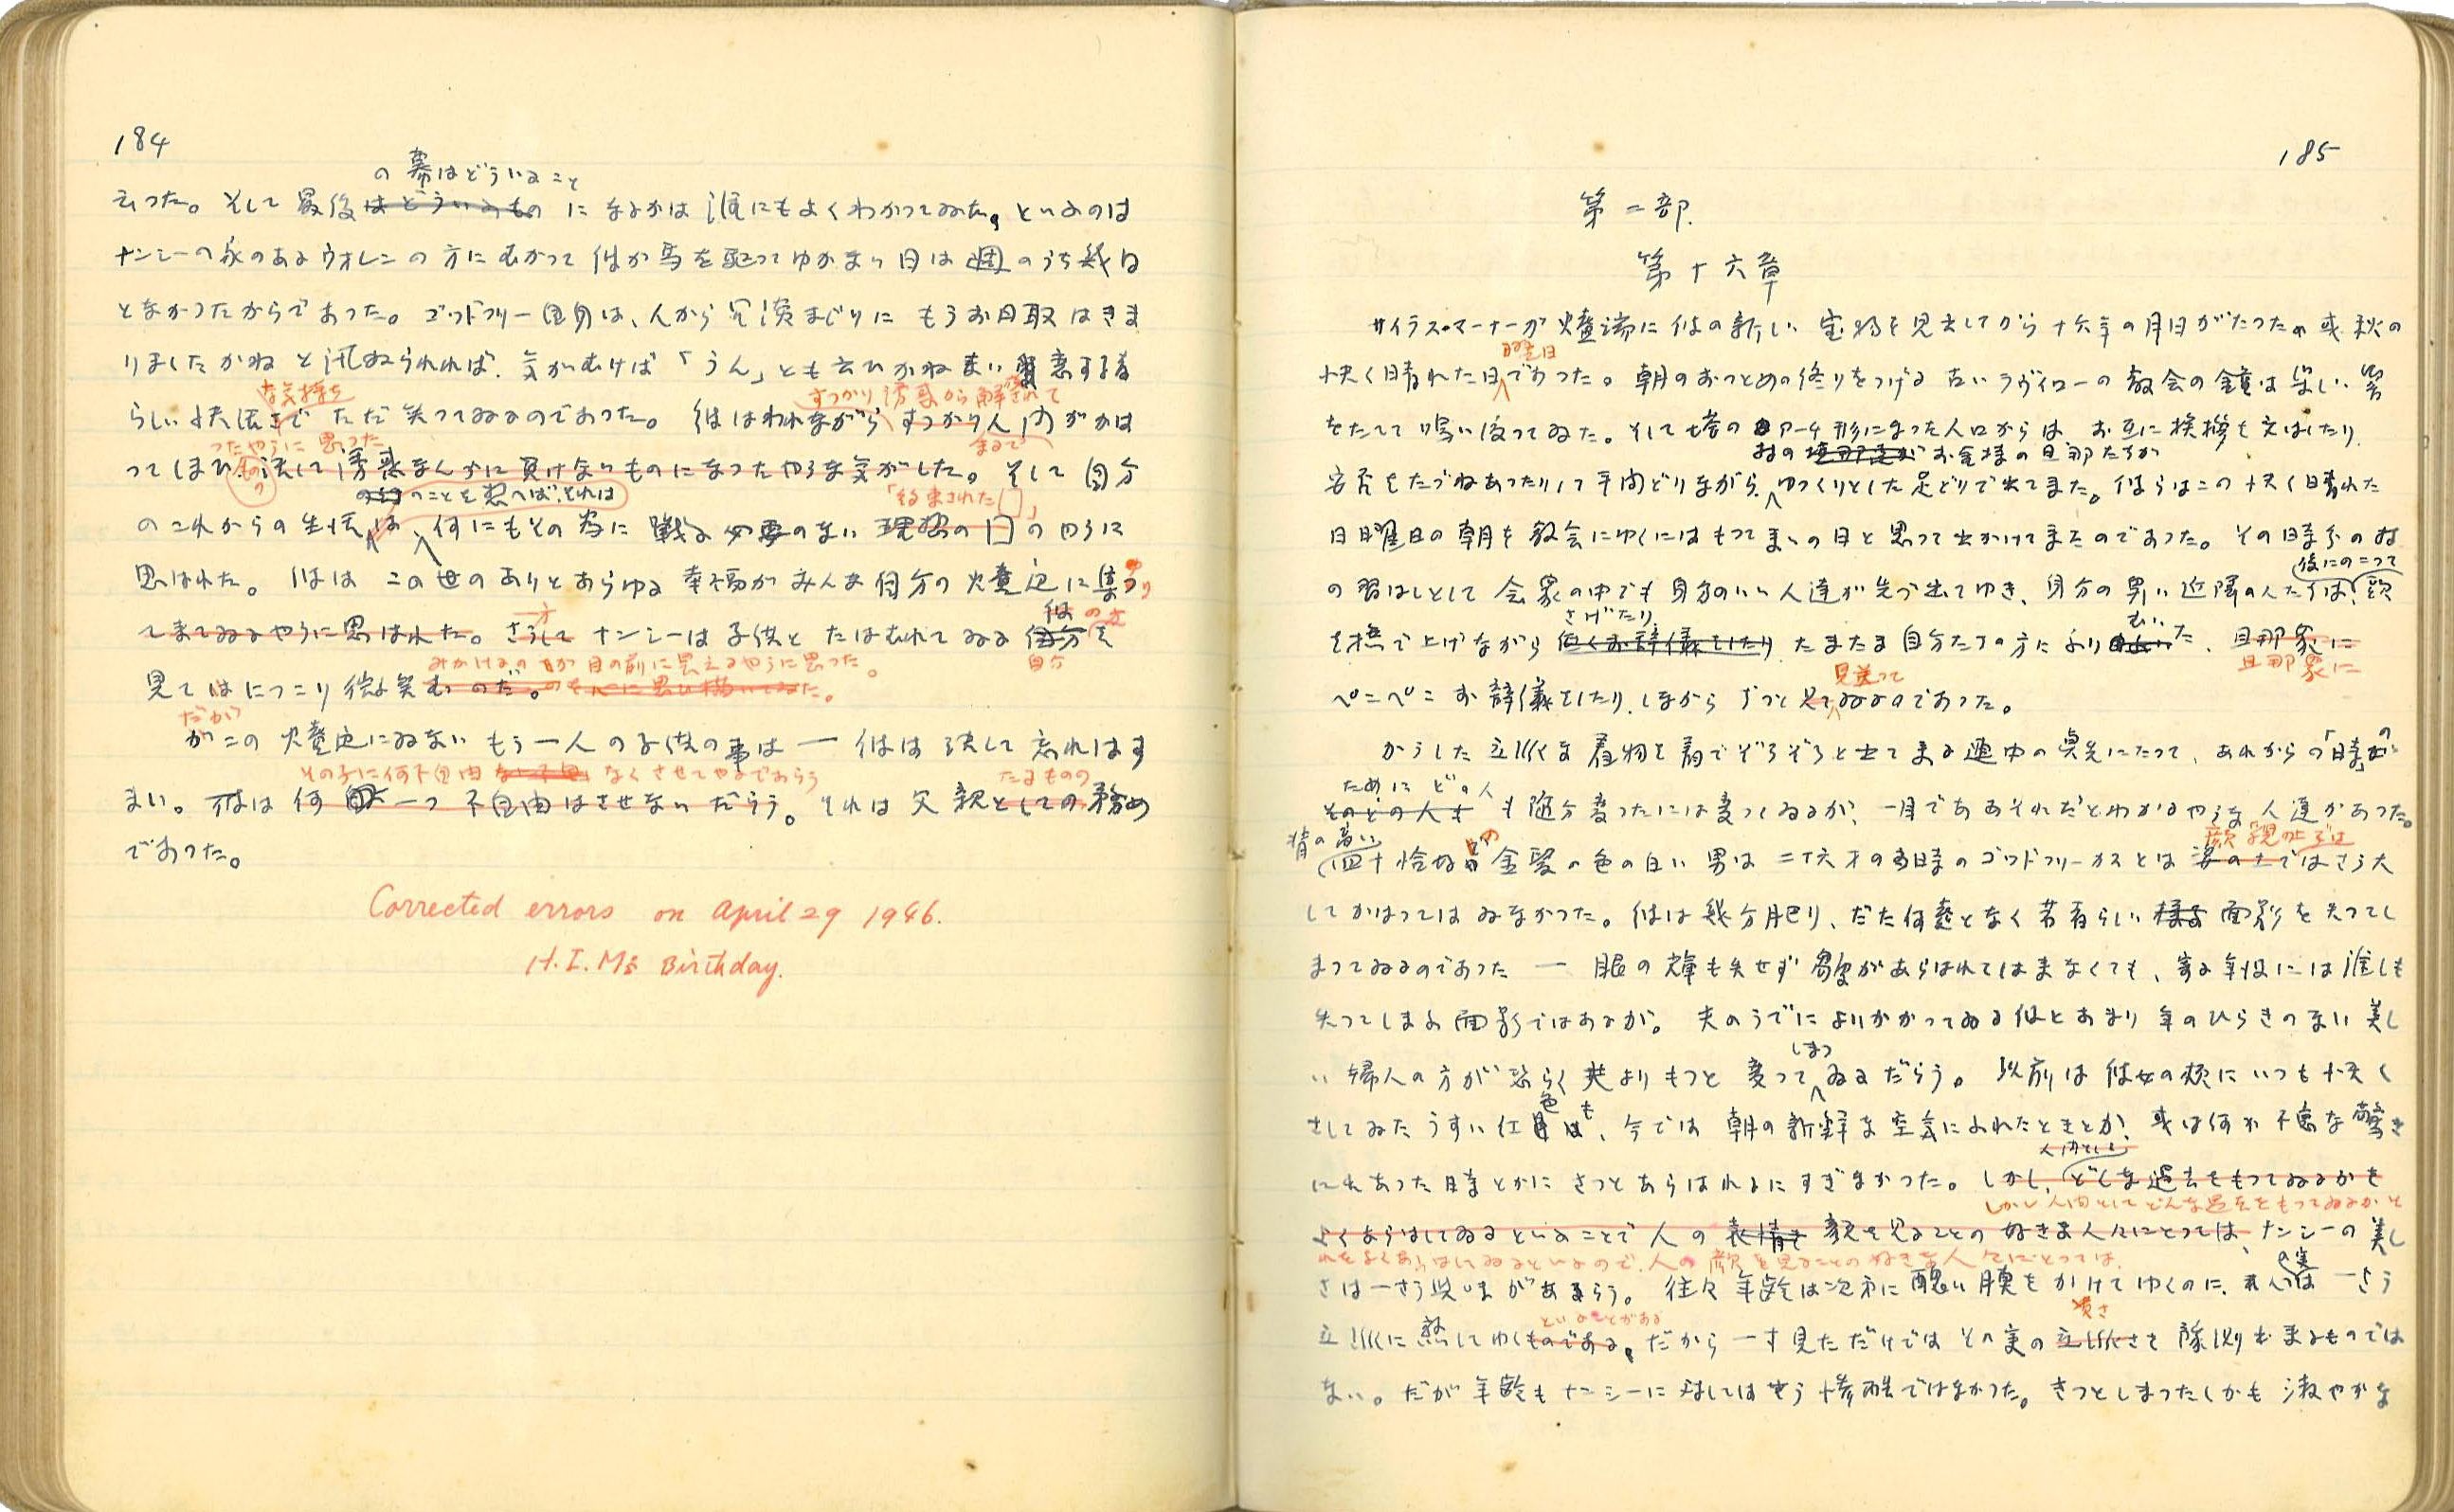 184
の幕はどういふこと
云つた。そして最後はどういふものになるかは誰にもよくわかつてゐた。といふのは
ナンシーの家のあるウオレンの方にむかつて彼が馬を駆つてゆかない日は週のうち幾日
となかつたからであつた。ゴツドフリー自身は、人から冗談まじりにもうお日取はきま
りましたかねと訊ねられれば、気がむけば「うん」とも云ひかねない恋する者
な気持を すつかり誘惑から解放されて
らしい快活さでただ笑つてゐるのであつた。彼はわれながらすつかり人間がかは
つたやうに思つた まるで
つてしまひ決して誘惑なんかに負けないものになつたやうな気がした。そして自分
のことを想へば、それは 「約束された国」
のこれからの生活は何にもその為に戦ふ必要のない理想の国のやうに
思はれた。彼はこの世のありとあらゆる幸福がみんな自分の炉辺に集つ
一方 彼の方
てきてゐるやうに思はれた。さうしてナンシーは子供とたはむれてゐる自分を
みかけるのが目の前に見えるやうに思つた。 自分
見てはにつこり微笑むのだ。のを心に思ひ描いてゐた。
だが
がこの炉辺にゐないもう一人の子供の事は—彼は決して忘れはす
その子に何不自由なくさせてやるであらう たるものの
まい。彼は何一つ不自由はさせないだらう。それは父親としての務め
であつた。
Corrected errors on April 29 1946.
H.I.M's Birthday.
185
第二部.
第十六章
サイラス・マーナーが炉端に彼の新しい宝物を見出してから十六年の月日がたつた或秋の
曜日
快く晴れた日であつた。朝のおつとめの終りをつげる古いラヴイローの教会の鐘は楽しい響
をたてて鳴り渡つてゐた。そして塔のアーチ形になつた入口からは お互に挨拶を交はしたり、
村の お金持の旦那たちが
安否をたづねあつたりして手間どりながら、ゆつくりとした足どりで出てきた。彼らはこの快く晴れた
日曜日の朝を教会にゆくにはもつてこいの日と思つて出かけてきたのであつた。その時分の村
後にのこつて
の習はしとして会衆の中でも身分のいい人達が先づ出てゆき、身分の卑い近隣の人たちは、頭
さげたり、 むいた
を撫で上げながら低くお辞儀をしたり、たまたま自分たちの方にふりむいた、旦那衆に
見送つて 旦那衆に
ペコペコお辞儀をしたりしながらずつと見てゐるのであつた。
かうした立派な着物を着てぞろぞろと出てきる連中の真先にたつて、あれからの「時」の
ためにどの人
そのどの人もも随分変つたには変つてゐるが、一目でああそれだとわかるやうな人達があつた。
背の高い 顔貌の上では
四十恰好の金髪の色の白い男は二十六才の当時のゴツドフリー・カスとは姿の上ではさう大
してかはつてはゐなかつた。彼は幾分肥り、だた何処となく若者らしい様な面影を失つてし
まつてゐるのであつた — 眼の光輝も失せず皺があらはれてはきなくても、寄る年波には誰しも
失つてしまふ面影ではあるが。夫のうでによりかかつてゐる彼とあまり年のひらきのない美し
しまつ
い婦人の方が恐らく夫よりもつと変つてゐるだらう。以前は彼女の頬にいつも快く
色も
さしてゐたうすい紅は、今では朝の新鮮な空気にふれたときとか、或は何か不意な驚き
人間として
にあつた時とかにさつとあらはれるにすぎなかつた。しかし、どんな過去をもつてゐるかを
しかし人間としてどんな過去をもつてゐるかそ
よくあらはしてゐるといふことで人の表情を顔を見ることの好きな人々にとつては、ナンシーの美し
れをよくあらはしてゐるといふので、人の顔を見ることの好きな人々にとつては、
の実
さは一さう興味があるらう。往々年齢は次第に醜い膜をかけてゆくのに、は一さう
といふことがある 良さ
立派に熟してゆくものである。だから一寸見ただけではその実の立派さを推測出来るものでは
ない。だが年齢もナンシーに対してはさう惨酷ではなかつた。きつとしまつたしかも淑やかな